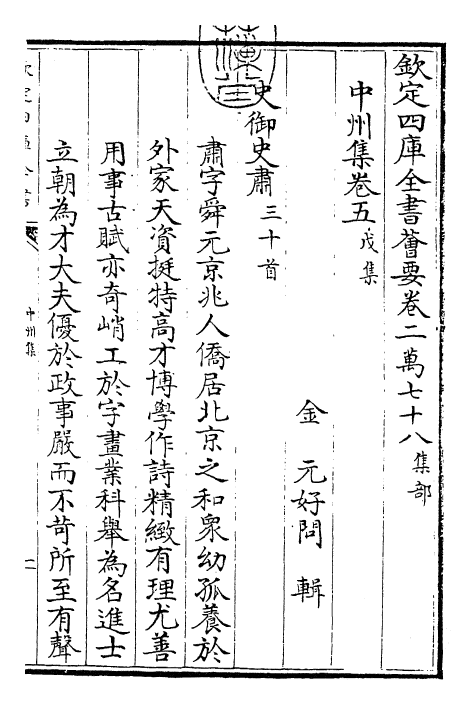 欽定四庫全書薈要卷二萬七十八集部
中州集卷五 戊集
金 元好問 輯
史御史肅三十首
肅字舜元京兆人僑居北京之和衆幼孤養於
外家天資挺特高才博學作詩精緻有理尤善
用事古賦亦奇峭工於字畫業科舉為名進士
立朝為才大夫優於政事嚴而不苛所至有聲
欽定四庫全書
中州集